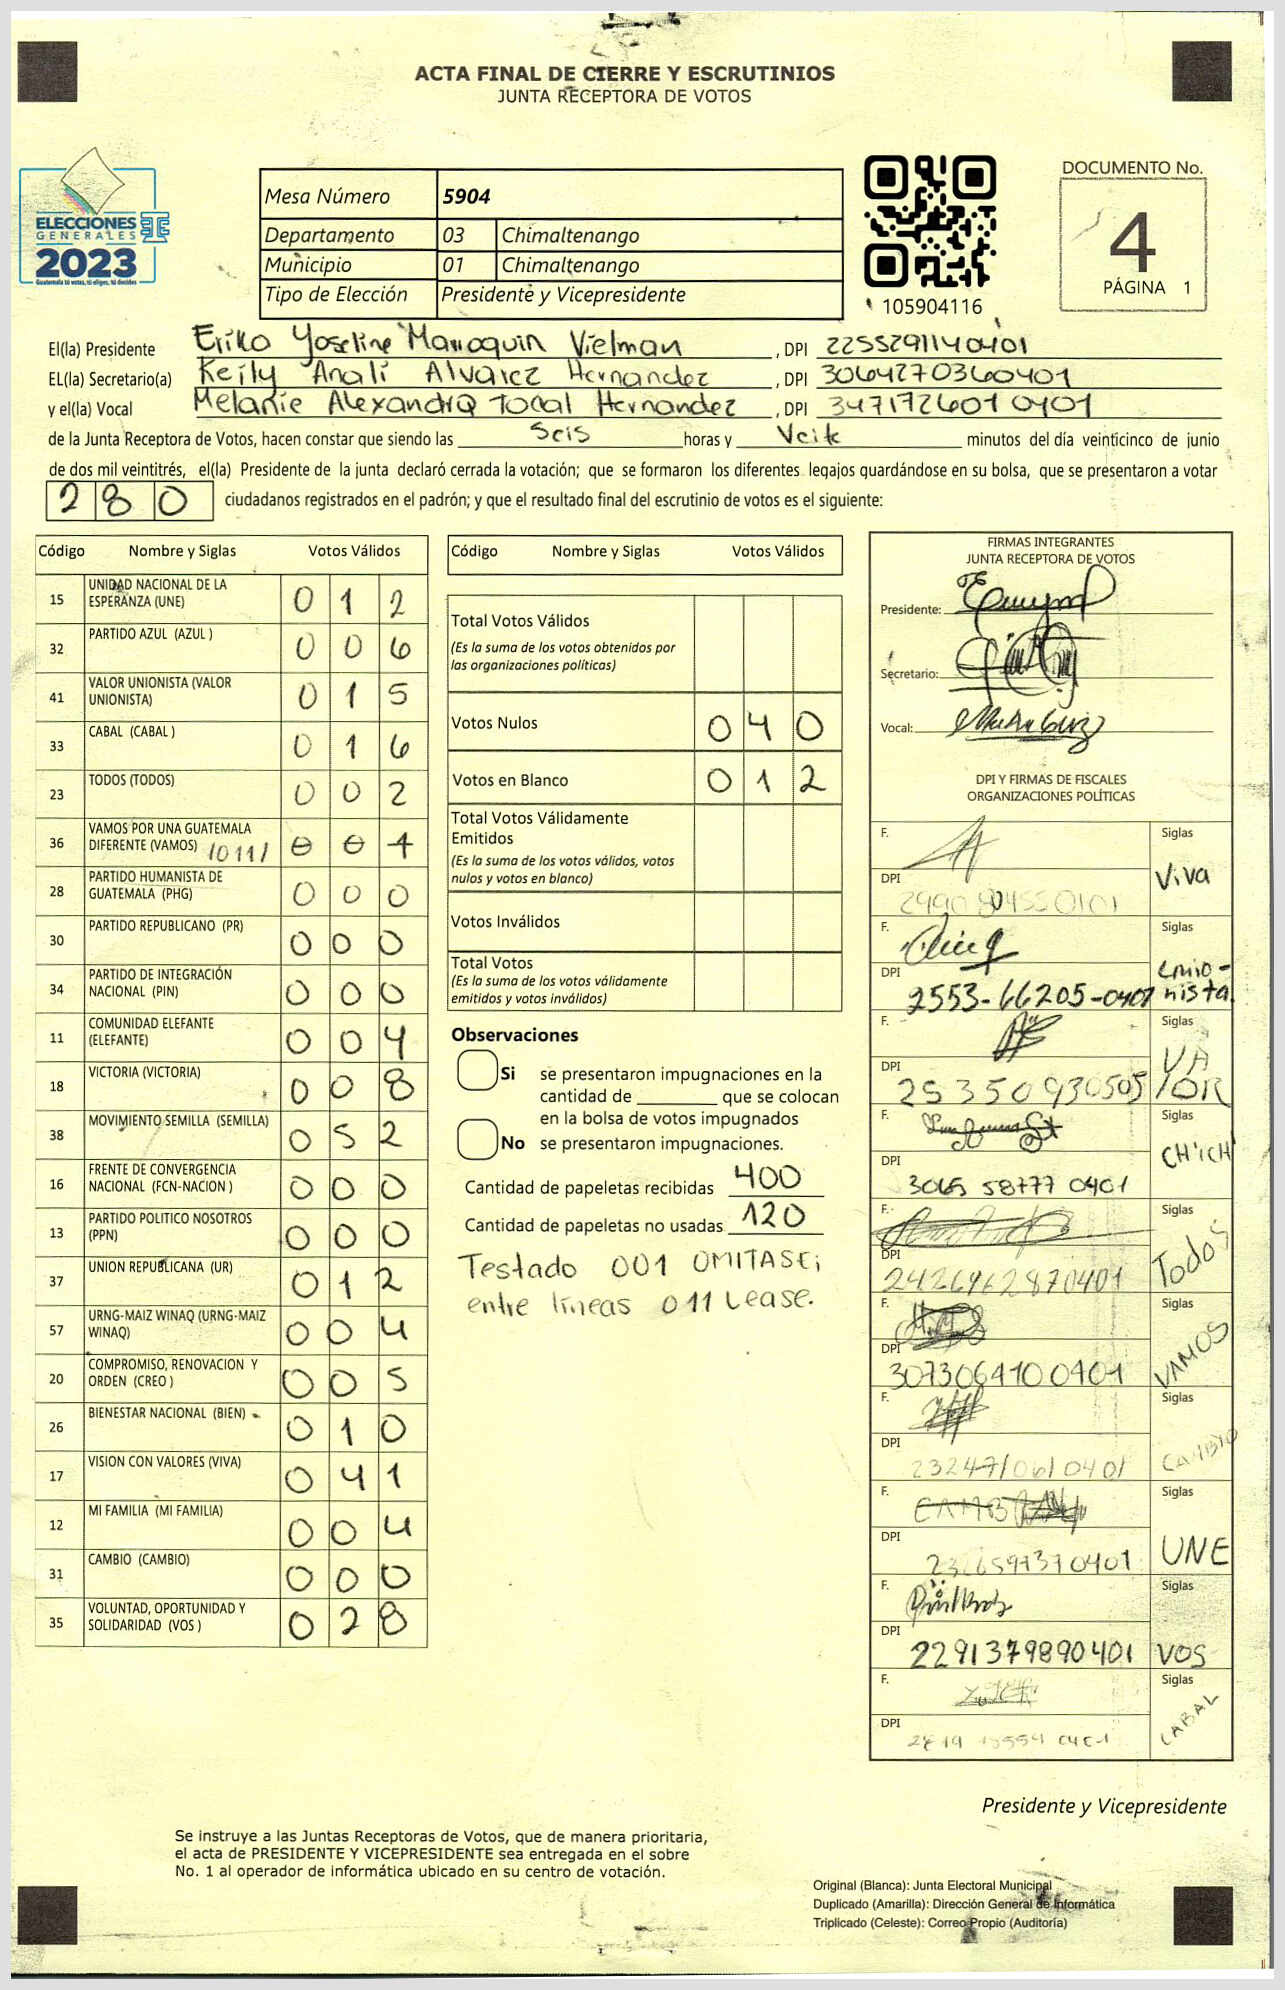 ACTA FINAL DE CIERRE Y ESCRUTINIOS
JUNTA RECEPTORA DE VOTOS
ELECCIONES
GENERALES
2023
Guatemala tú votas, tú eliges, tú decides
Mesa Número 5904
Departamento 03 Chimaltenango
Municipio 01 Chimaltenango
Tipo de Elección Presidente y Vicepresidente
105904116
DOCUMENTO No.
4
PÁGINA 1
El(la) Presidente Eriko Yoseline Marroquin Vielman, DPI 2255291140401
EL(la) Secretario(a) Keily Analí Alvarez Hernandez, DPI 3064270360401
y el(la) Vocal Melanie Alexandra Tocal Hernandez, DPI 3471726010401
de la Junta Receptora de Votos, hacen constar que siendo las Seis horas y minutos del día veinticinco de junio
de dos mil veintitrés, el(la) Presidente de la junta declaró cerrada la votación; que se formaron los diferentes legajos guardándose en su bolsa, que se presentaron a votar
280 ciudadanos registrados en el padrón; y que el resultado final del escrutinio de votos es el siguiente:
Código Nombre y Siglas Votos Válidos
15 UNIDAD NACIONAL DE LA ESPERANZA (UNE) 0 1 2
32 PARTIDO AZUL (AZUL ) 0 0 6
41 VALOR UNIONISTA (VALOR UNIONISTA) 0 1 5
33 CABAL (CABAL ) 0 1 6
23 TODOS (TODOS) 0 0 2
36 VAMOS POR UNA GUATEMALA DIFERENTE (VAMOS) /011/ 0 0 1
28 PARTIDO HUMANISTA DE GUATEMALA (PHG) 0 0 0
30 PARTIDO REPUBLICANO (PR) 0 0 0
34 PARTIDO DE INTEGRACIÓN NACIONAL (PIN) 0 0 0
11 COMUNIDAD ELEFANTE (ELEFANTE) 0 0 4
18 VICTORIA (VICTORIA) 0 0 8
38 MOVIMIENTO SEMILLA (SEMILLA) 0 5 2
16 FRENTE DE CONVERGENCIA NACIONAL (FCN-NACION ) 0 0 0
13 PARTIDO POLITICO NOSOTROS (PPN) 0 0 0
37 UNION REPUBLICANA (UR) 0 1 2
57 URNG-MAIZ WINAQ (URNG-MAIZ WINAQ) 0 0 4
20 COMPROMISO, RENOVACION Y ORDEN (CREO ) 0 0 5
26 BIENESTAR NACIONAL (BIEN) 0 1 0
17 VISION CON VALORES (VIVA) 0 4 1
12 MI FAMILIA (MI FAMILIA) 0 0 4
31 CAMBIO (CAMBIO) 0 0 0
35 VOLUNTAD, OPORTUNIDAD Y SOLIDARIDAD (VOS ) 0 2 8
Código Nombre y Siglas Votos Válidos
Total Votos Válidos
(Es la suma de los votos obtenidos por
las organizaciones políticas)
Votos Nulos 0 4 0
Votos en Blanco 0 1 2
Total Votos Válidamente
Emitidos
(Es la suma de los votos válidos, votos
nulos y votos en blanco)
Votos Inválidos
Total Votos
(Es la suma de los votos válidamente
emitidos y votos inválidos)
Observaciones
Si se presentaron impugnaciones en la
cantidad de ________ que se colocan
en la bolsa de votos impugnados
No se presentaron impugnaciones.
Cantidad de papeletas recibidas 400
Cantidad de papeletas no usadas 120
Testado 001 OMITASE;
entre líneas 011 Lease.
FIRMAS INTEGRANTES
JUNTA RECEPTORA DE VOTOS
Presidente:
Secretario:
Vocal:
DPI Y FIRMAS DE FISCALES
ORGANIZACIONES POLÍTICAS
F. Siglas
DPI Viva
F. Siglas
DPI 2553-66205-0401 unio-
nista
F. Siglas
DPI 25350930505 VA
lOR
F. Siglas
DPI 3065 58777 0401 CH'ICH'
F. Siglas
DPI 2426962870401 Todos
F. Siglas
DPI 3073064100401 VAMOS
F. Siglas
DPI 23247/06/0401 CAMBIO
F. Siglas
DPI UNE
F. Siglas
DPI 2291379890401 VOS
F. Siglas
DPI CABAL
Presidente y Vicepresidente
Se instruye a las Juntas Receptoras de Votos, que de manera prioritaria,
el acta de PRESIDENTE Y VICEPRESIDENTE sea entregada en el sobre
No. 1 al operador de informática ubicado en su centro de votación.
Original (Blanca): Junta Electoral Municipal
Duplicado (Amarilla): Dirección General de Informática
Triplicado (Celeste): Correo Propio (Auditoría)